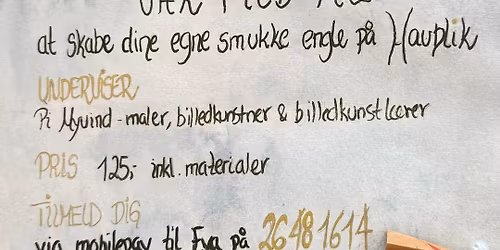 at skabe dine egne smukke engle på Havplik
UNDERVISER
Pi Myuind - maler, billedkunstner & billedkunstlærer
PRIS 125,- inkl. materialer
TILMELD DIG
via mobilepay til Eva på 26481614